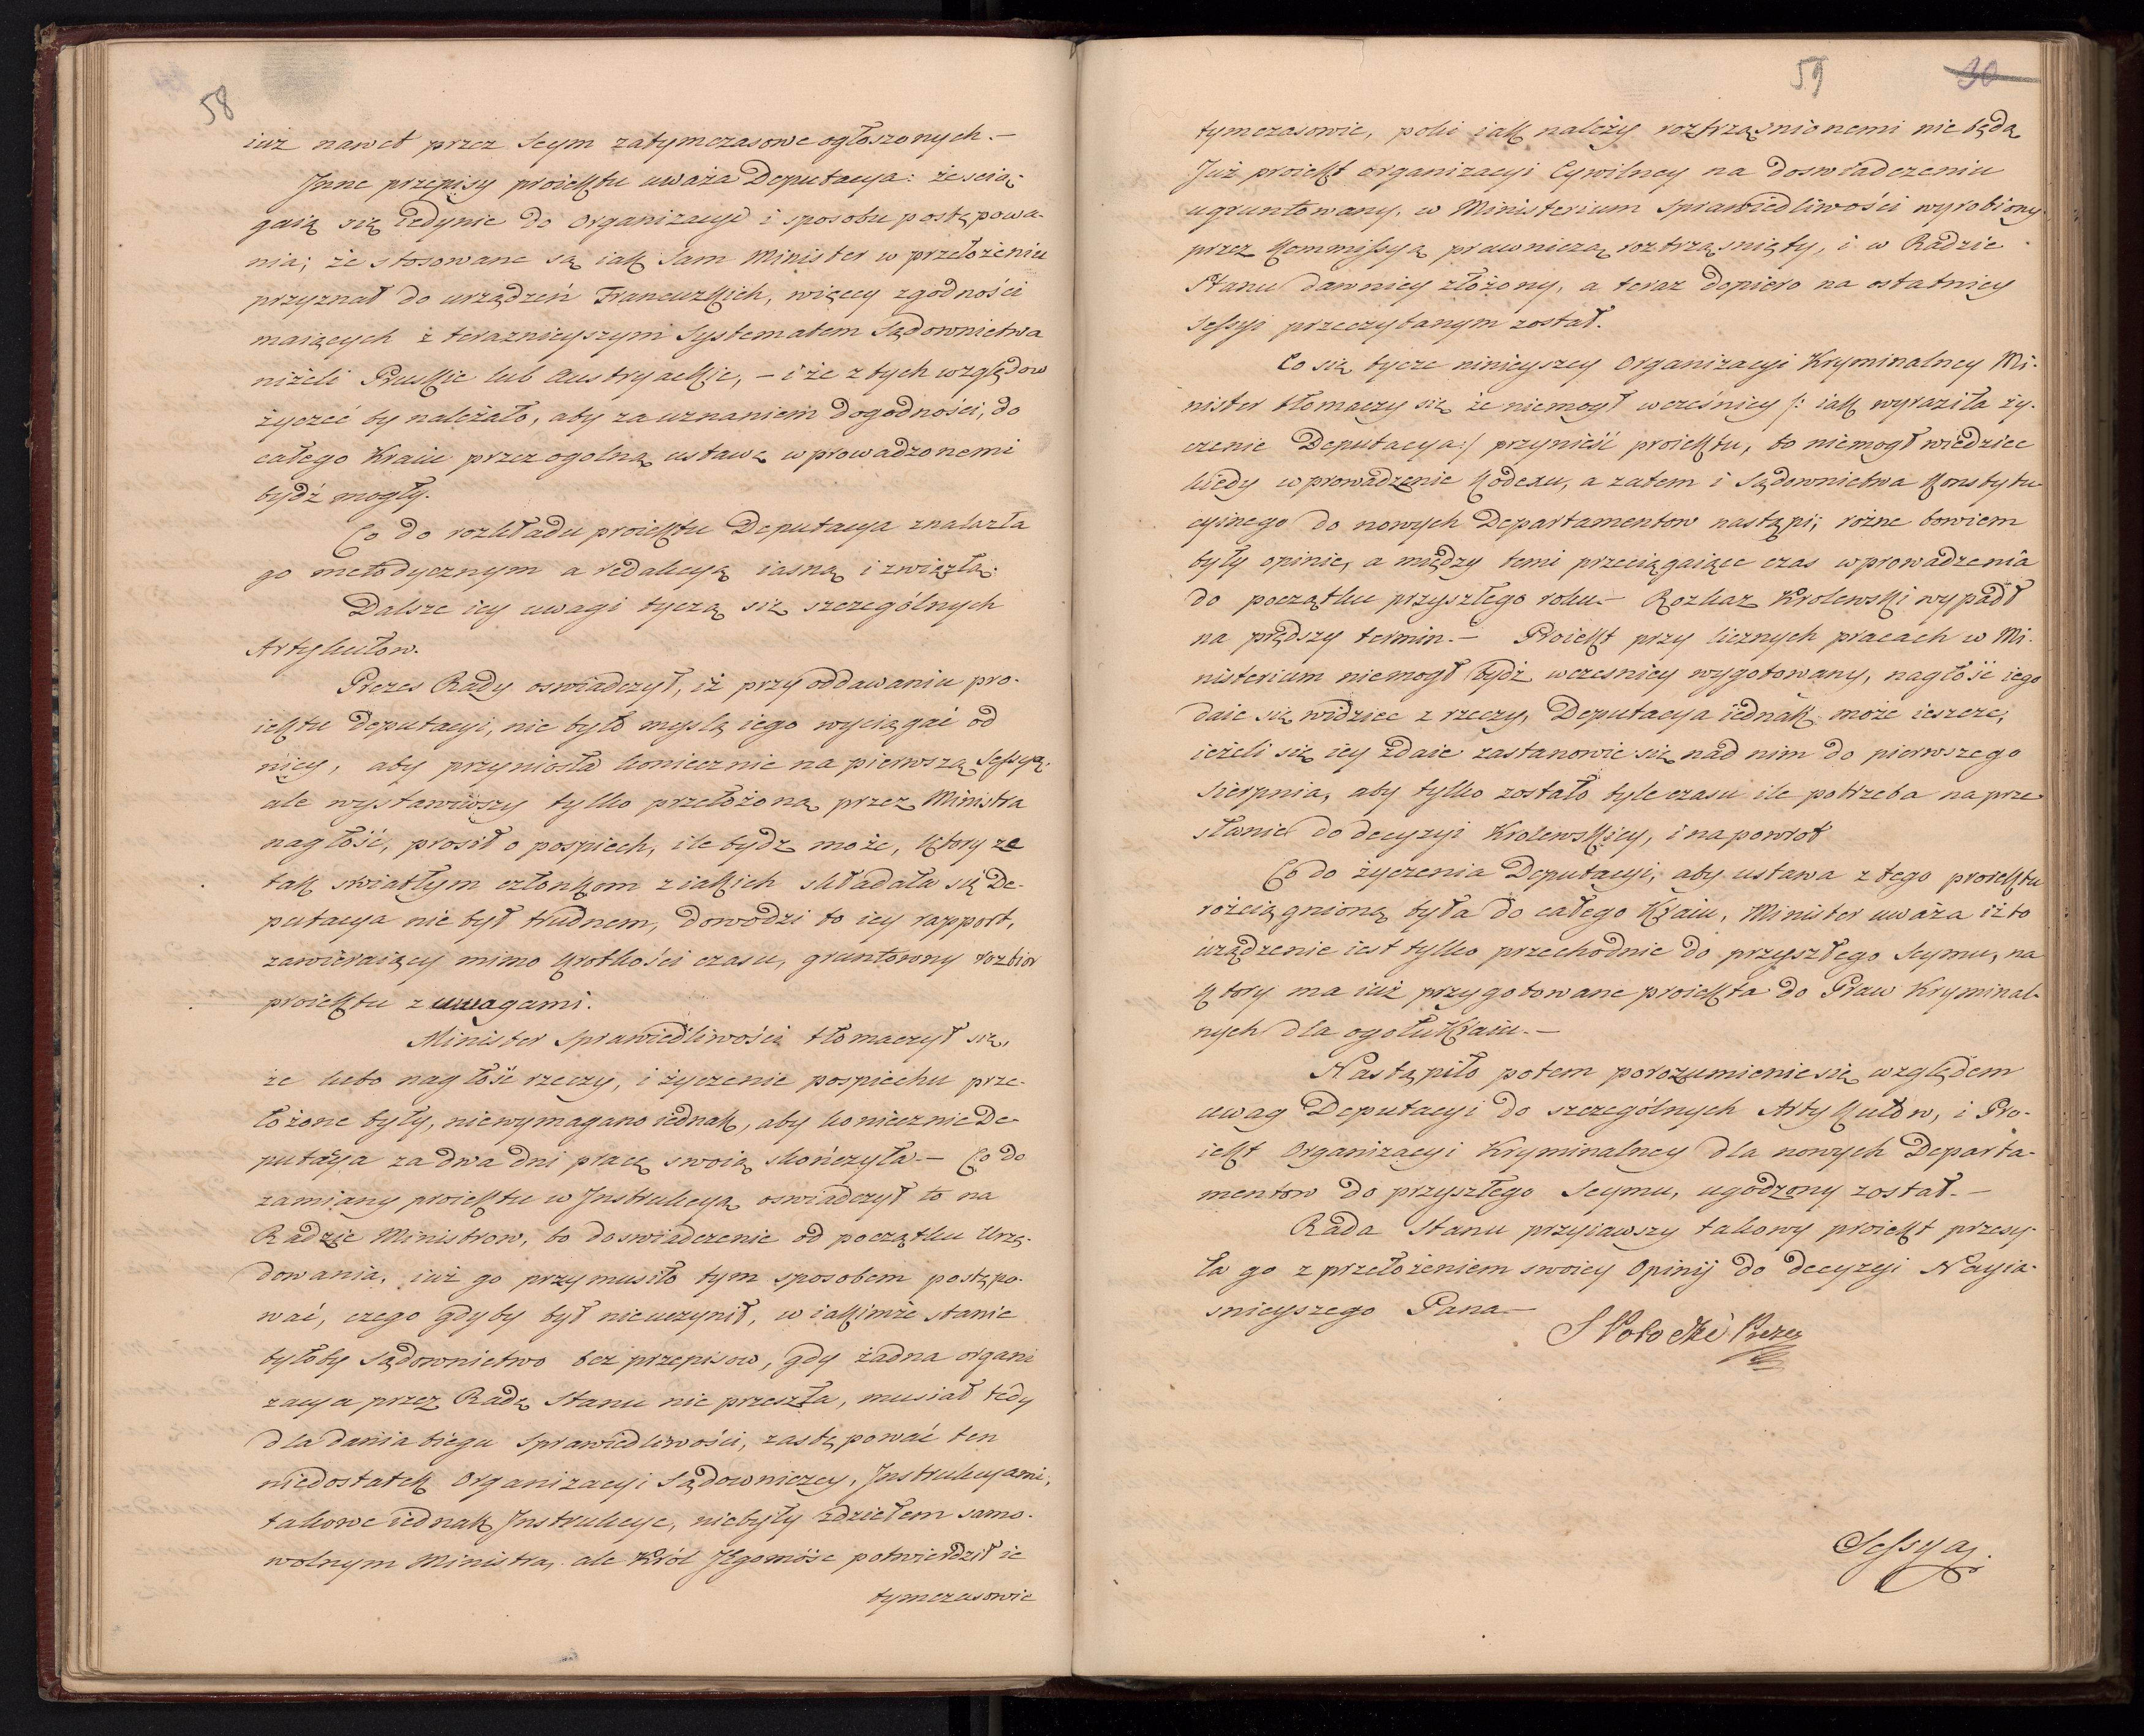 58
iuż nawet przez Seym zatymczasowe ogłoszonych.—
Jnne przepisy proiektu uważa Deputacya: że ścią-
gaią się iedynie do Organizacyi i sposobu postępowa-
nia; że stosowane są iak sam Minister w przełożeniu
przyznał do urządzeń Francuzkich, więcey zgodności
maiących z teraznieyszym Systematem Sądownictwa
niżeli Pruskie lub Austryackie, — i że z tych względow
życzeć by należało, aby za uznaniem dogodności, do
całego Kraiu przez ogolną ustawę wprowadzonemi
bydź mogły.
Co do rozkładu proiektu Deputacya znalazła
go metodycznym a redakcyą iasną i zwięzłą.
Dalsze iey uwagi tyczą się szczególnych
Artykułow.
Prezes Rady oswiadczył, iż przy oddawaniu pro-
iektu Deputacyi, nie było myslą iego wyciągać od
niey, aby przyniosła koniecznie na pierwszą Sessyą,
ale wystawiwszy tylko przełożoną przez Ministra
nagłość, prosił o pospiech, ile bydz może, ktory ze
tak swiatłym członkom z iakich składała się De-
putacya nie był trudnem, dowodzi to iey rapport,
zawieraiący mimo krotkości czasu, gruntowny rozbior
proiektu z uwagami.
Minister Sprawiedliwości tłomaczył się,
że lubo nagłość rzeczy, i życzenie pospiechu prze-
łożone były, niewymagano iednak, aby koniecznie De-
putacya za dwa dni pracę swoią skończyła.— Co do
zamiany proiektu w Jnstrukcyą oswiadczył to na
Radzie Ministrow, bo doswiadczenie od początku Urzę-
dowania, iuż go przymusiło tym sposobem postępo-
wać, czego gdyby był nieuczynił, w iakimże stanie
byłoby Sądownictwo bez przepisow, gdy żadna organi
zacya przez Radę Stanu nie przeszła, musiał tedy
dla dania biegu Sprawiedliwości, zastępować ten
niedostatek Organizacyi Sądowniczey, Jnstrukcyami,
takowe iednak Jnstrukcye, niebyły dziełem samo-
wolnym Ministra, ale Król Jegomość potwierdził ie
tymczasowie
59
30
tymczasowie, poki iak należy roztrząsnionemi nie będą
Już proiekt organizacyi Cywilney na doswiadczeniu
ugruntowany, w Ministerium Sprawiedliwości wyrobiony
przez Kommissyą prawniczą roztrząsnięty, i w Radzie
Stanu dawniey złożony, a teraz dopiero na ostatniey
Sessyi przeczytanym został.
Co się tycze ninieyszey Organizacyi Kryminalney Mi-
nister tłomaczy się że niemogł wcześniey /: iak wyraziła ży-
czenie Deputacya :/ przynieść proiektu, bo niemogł wiedziec
kiedy wprowadzenie Kodexu, a zatem i Sądownictwa Konstytu-
cyinego do nowych Departamentow nastąpi; rożne bowiem
były opinie, a między temi przeciągaiące czas wprowadzenia
do początku przyszłego roku.— Rozkaz Krolewski wypadł
na prędszy termin.— Proiekt przy licznych pracach w Mi-
nisterium niemogł bydź wczesniey wygotowany, nagłość iego
daie się widziec z rzeczy, Deputacya iednak może ieszcze,
ieżeli się iey zdaie zastanowic się nad nim do pierwszego
Sierpnia, aby tylko zostało tyle czasu ile potrzeba na prze
słanie do decyzyi Krolewskiey, i na powrot
Co do życzenia Deputacyi, aby ustawa z tego proiektu
rościągniona była do całego Kraiu, Minister uważa iż to
urządzenie iest tylko przechodnie do przyszłego Seymu, na
ktory ma iuż przygotowane proiekta do Praw Kryminal-
nych dla ogołu Kraiu.—
Nastąpiło potem porozumienie się względem
uwag Deputacyi do szczególnych Artykułow, i Pro-
iekt Organizacyi Kryminalney dla nowych Departa-
mentow do przyszłego Seymu, ugodzony został.—
Rada Stanu przyiąwszy takowy proiekt przesy-
ła go z przełożeniem swoiey Opinij do decyzyi Nayia-
snieyszego Pana—
S Potocki Prezes
Sessya